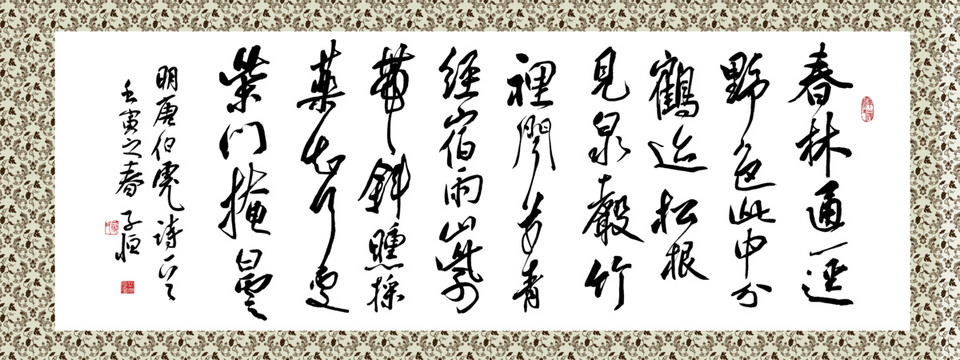 春林通一逕
野色此中分
鶴迹松根
見泉聲竹
裡聞草青
經宿雨山紫
帶斜曛採
藥知何處
柴門掩白雲
明唐伯虎詩一首
壬寅之春 子恒